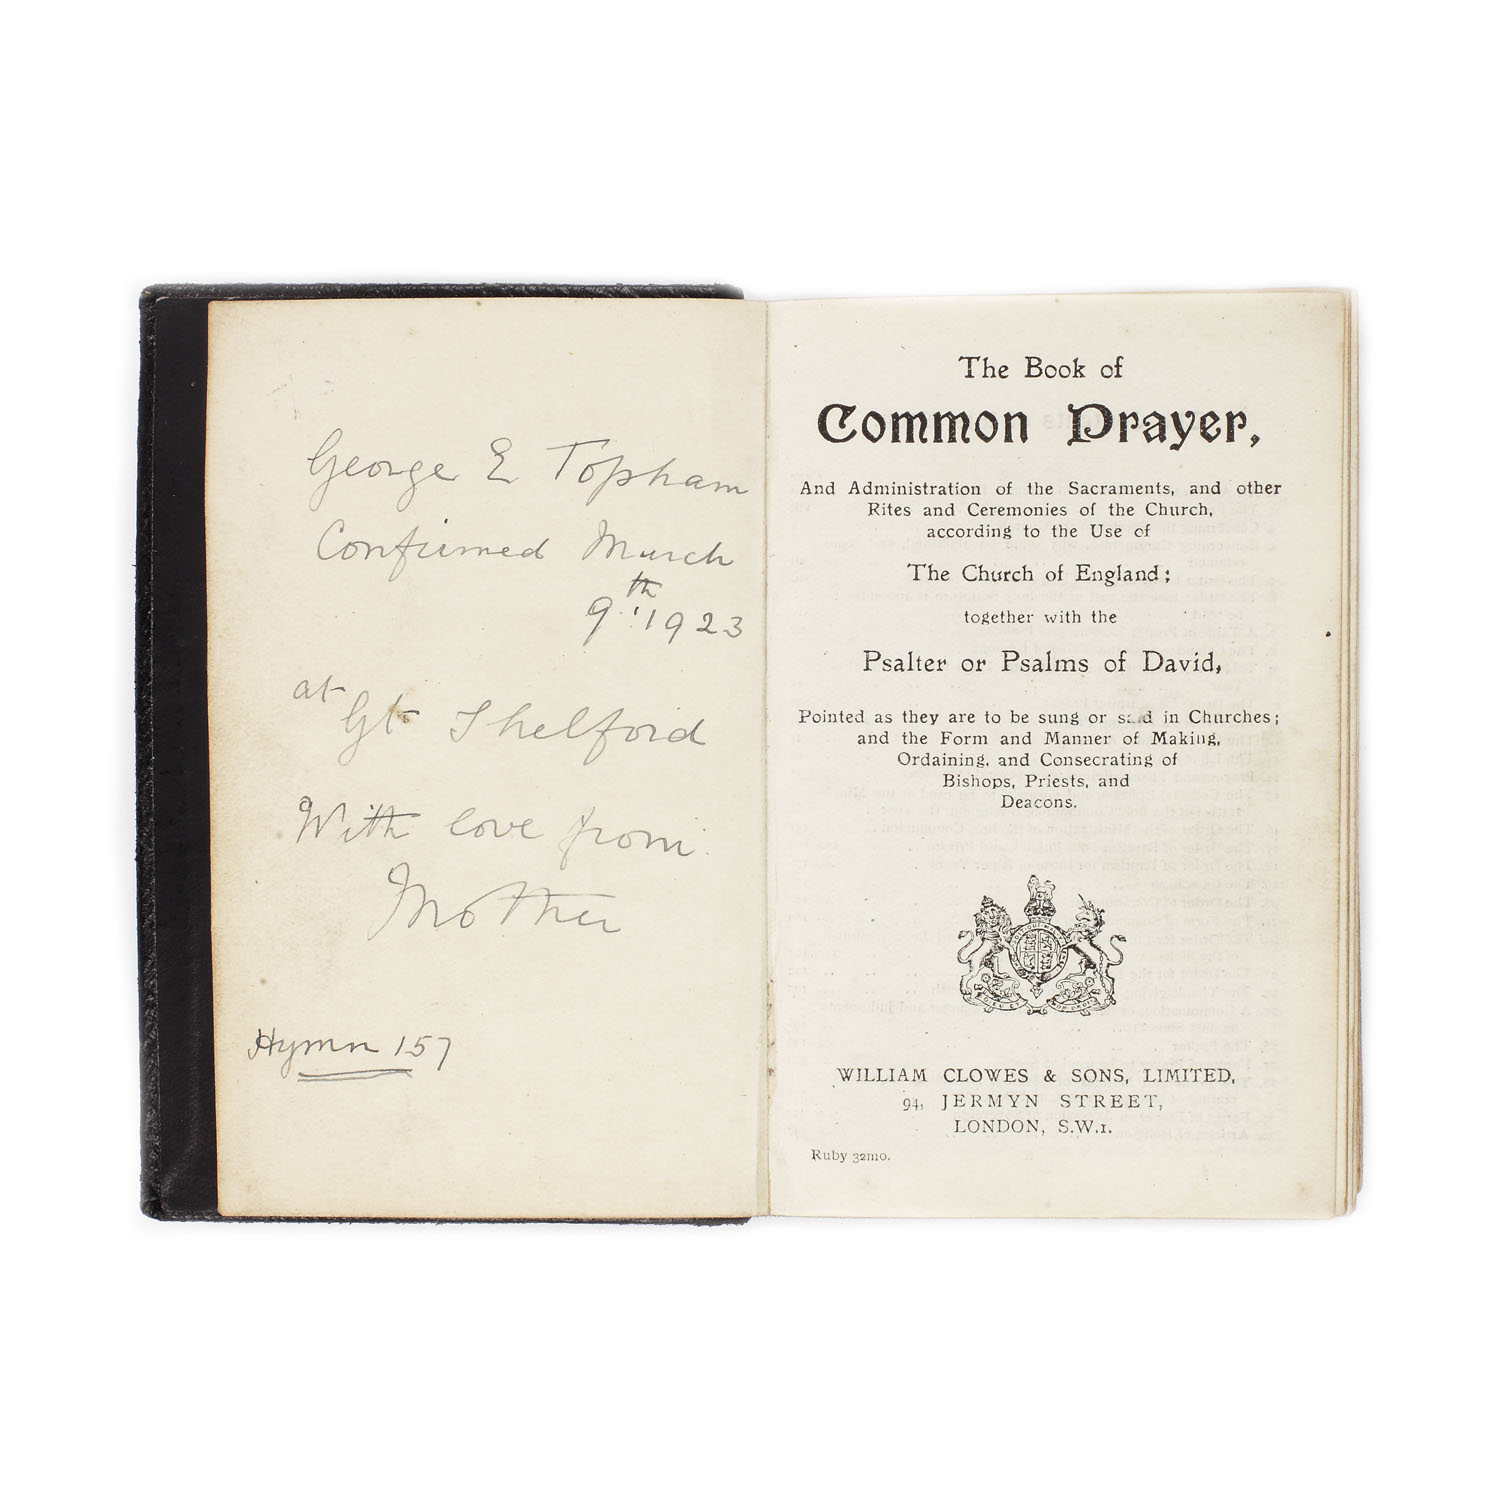 George E Topham
Confirmed March
9th 1923
at Gt Shelford
With love from
Mother
Hymn 157
The Book of
Common Prayer,
And Administration of the Sacraments, and other
Rites and Ceremonies of the Church,
according to the Use of
The Church of England;
together with the
Psalter or Psalms of David,
Pointed as they are to be sung or said in Churches;
and the Form and Manner of Making,
Ordaining, and Consecrating of
Bishops, Priests, and
Deacons.
WILLIAM CLOWES & SONS, LIMITED,
94, JERMYN STREET,
LONDON, S.W.1.
Ruby 32mo.